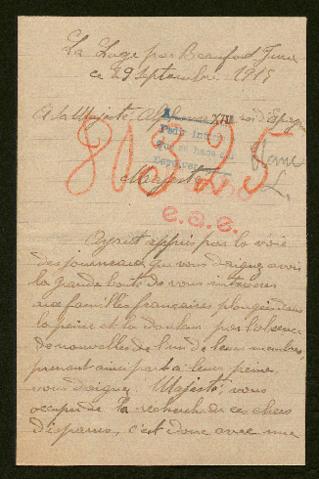 La Loge par Beaufort Jura
ce 29 septembre 1915
A sa Majesté Alphonse XIII roi d'Espagne
80825
Majesté
e.a.e.
Ayant appris par la voie
des journeaux que vous daignez avoir
la grande bonté de vous intéresser
aux familles françaises plongées dans
la peine et la douleur par l'absence
de nouvelles de l'un de leurs membres,
prenant ainsi part à leur peine
vous daignez, Majesté, vous
occuper de la recherche de ces chers
disparus, c'est donc avec une